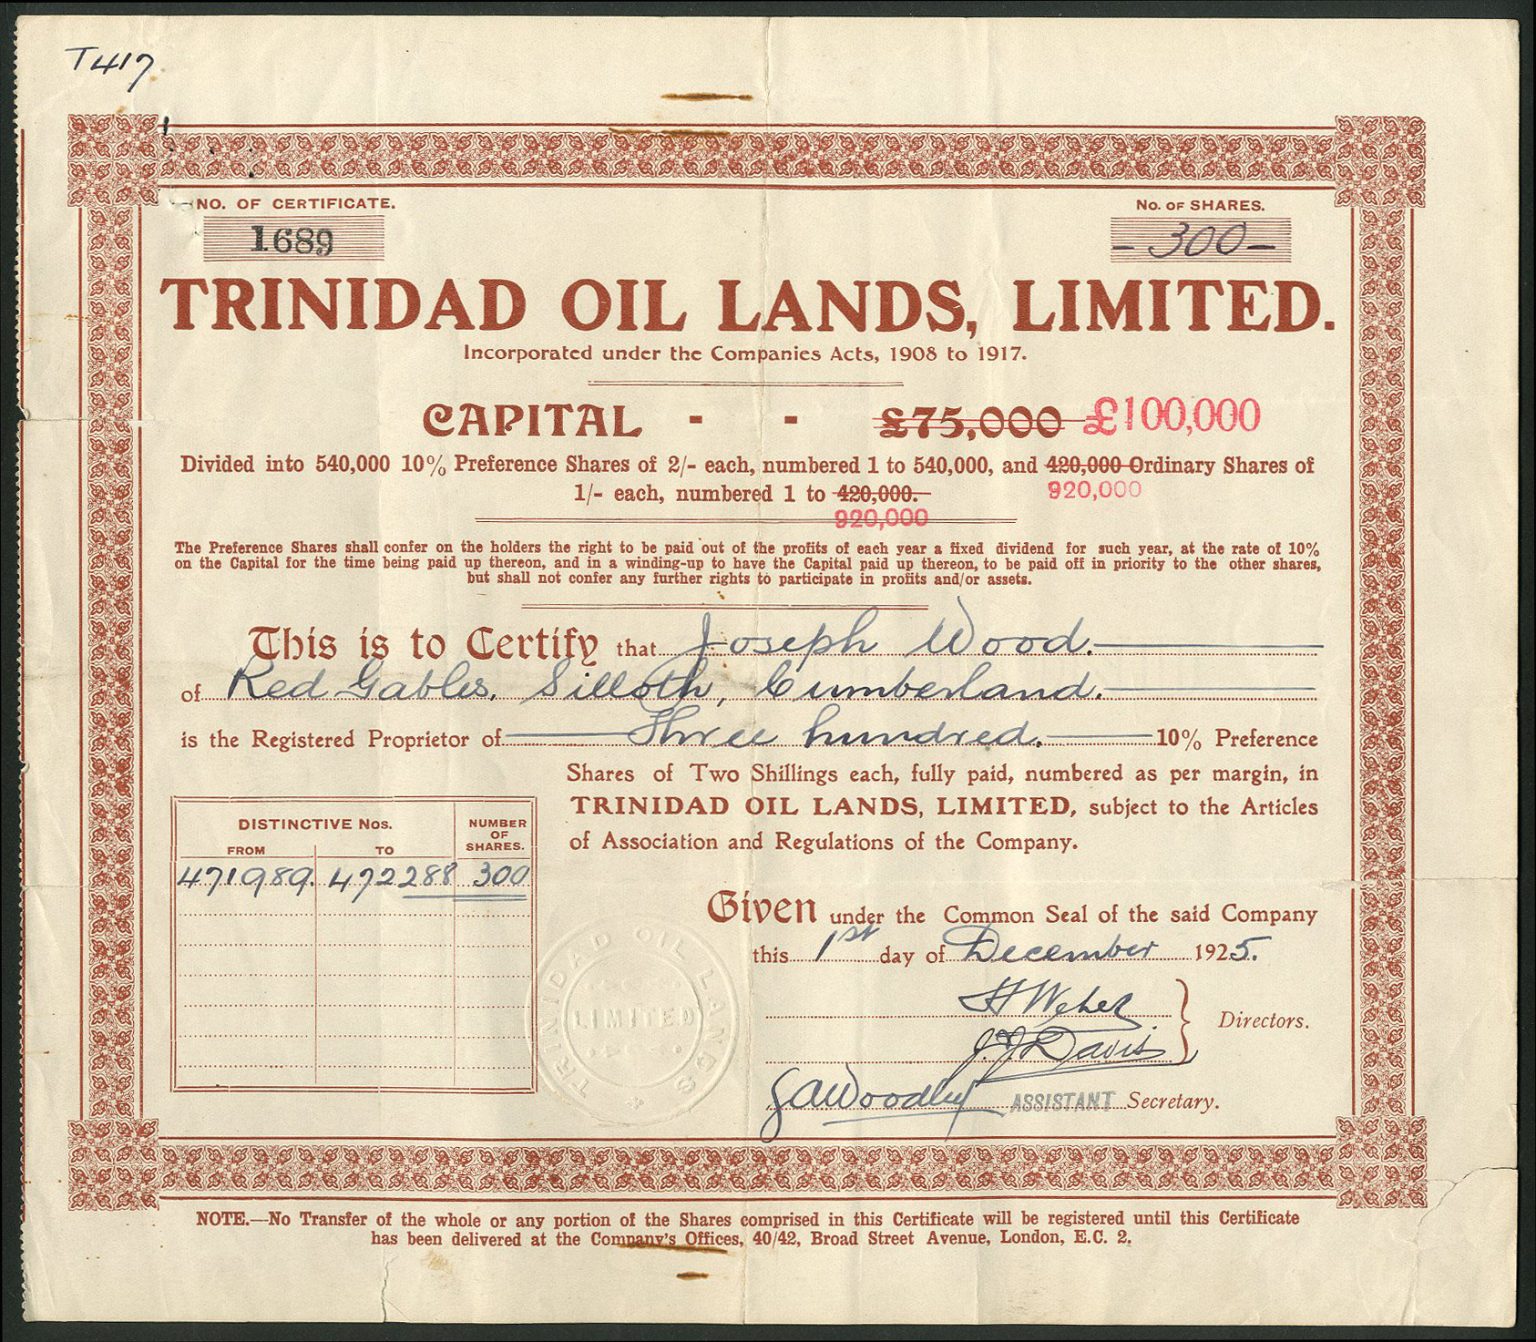 T417
NO. OF CERTIFICATE.
1689
No. OF SHARES.
– 300 –
TRINIDAD OIL LANDS, LIMITED.
Incorporated under the Companies Acts, 1908 to 1917.
CAPITAL - - £75,000 £100,000
Divided into 540,000 10% Preference Shares of 2/- each, numbered 1 to 540,000, and 420,000 Ordinary Shares of
920,000
1/- each, numbered 1 to 420,000.
920,000
The Preference Shares shall confer on the holders the right to be paid out of the profits of each year a fixed dividend for such year, at the rate of 10%
on the Capital for the time being paid up thereon, and in a winding-up to have the Capital paid up thereon, to be paid off in priority to the other shares,
but shall not confer any further rights to participate in profits and/or assets.
This is to Certify that Joseph Wood.
of Red Gables, Silloth, Cumberland.
is the Registered Proprietor of Three hundred. 10% Preference
Shares of Two Shillings each, fully paid, numbered as per margin, in
TRINIDAD OIL LANDS, LIMITED, subject to the Articles
of Association and Regulations of the Company.
DISTINCTIVE Nos.
NUMBER OF SHARES.
FROM TO
471989. 472288 300
Given under the Common Seal of the said Company
this 1st day of December 1925.
TRINIDAD OIL LANDS
LIMITED
H Weber
J. J. Davis
Directors.
G A Woodley ASSISTANT Secretary.
NOTE.—No Transfer of the whole or any portion of the Shares comprised in this Certificate will be registered until this Certificate
has been delivered at the Company's Offices, 40/42, Broad Street Avenue, London, E.C. 2.